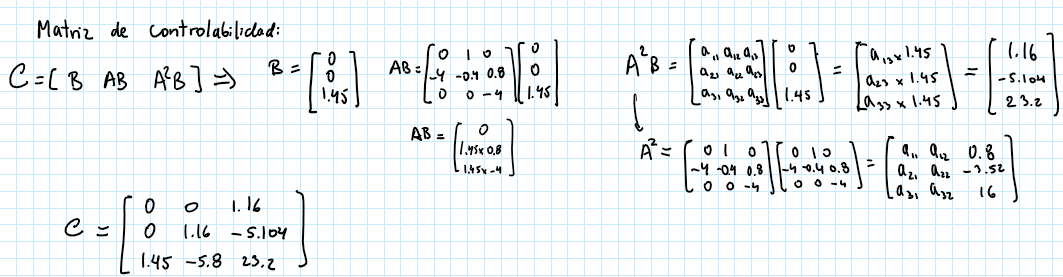 Matriz de Controlabilidad:
C = [ B AB A²B ] ⇒ B = [0; 0; 1.45]
AB = [0 1 0; -4 -0.4 0.8; 0 0 -4] [0; 0; 1.45]
AB = [0; 1.45x0.8; 1.45x-4]
A²B = [a₁₁ a₁₂ a₁₃; a₂₁ a₂₂ a₂₃; a₃₁ a₃₂ a₃₃] [0; 0; 1.45] = [a₁₃ x 1.45; a₂₃ x 1.45; a₃₃ x 1.45] = [1.16; -5.104; 23.2]
A² = [0 1 0; -4 -0.4 0.8; 0 0 -4] [0 1 0; -4 -0.4 0.8; 0 0 -4] = [a₁₁ a₁₂ 0.8; a₂₁ a₂₂ -3.52; a₃₁ a₃₂ 16]
C = [0 0 1.16; 0 1.16 -5.104; 1.45 -5.8 23.2]